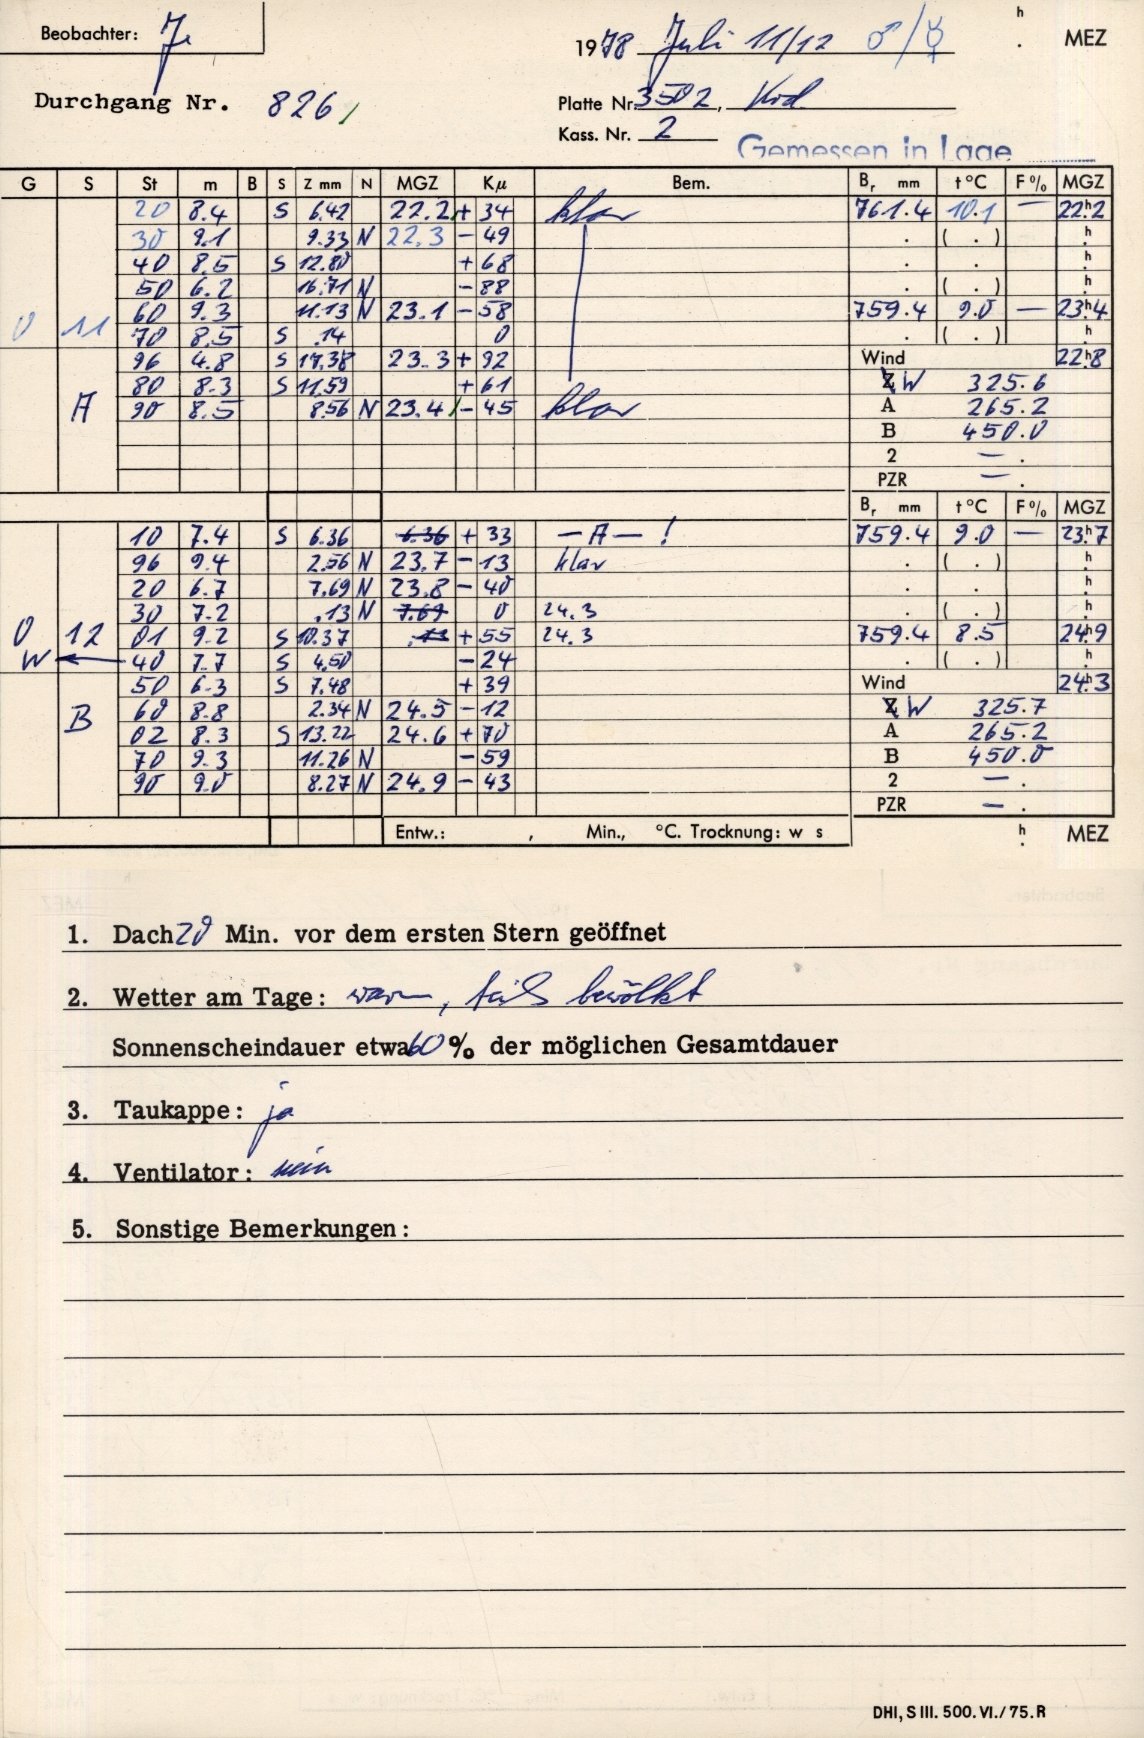 Beobachter: J.
1978 Juli 11/12 ♂/☿ h . MEZ
Durchgang Nr. 826,
Platte Nr. 3502, Kod.
Kass. Nr. 2
Gemessen in Lage
G S St m B S Z mm N MGZ Kµ Bem. Br mm t°C F% MGZ
20 8.4 S 6.42 22.2 + 34 klar 761.4 10.1 — 22h2
30 9.1 9.33 N 22.3 - 49 . ( . ) h
40 8.5 S 12.80 + 68 . . h
50 6.2 16.71 N - 88 . ( . ) h
0 11 60 9.3 11.13 N 23.1 - 58 759.4 9.0 — 23h4
70 8.5 S .14 0 . ( . ) h
96 4.8 S 17.38 23.3 + 92 Wind 22h8
80 8.3 S 11.59 + 61 W 325.6
A 90 8.5 8.56 N 23.4 - 45 klar A 265.2
B 450.0
2 — .
PZR — .
Br mm t°C F% MGZ
10 7.4 S 6.36 6.36 + 33 — A — ! 759.4 9.0 — 23h7
96 9.4 2.56 N 23.7 - 13 klar . ( . ) h
20 6.7 7.69 N 23.8 - 40 . . h
30 7.2 .13 N 7.69 0 24.3 . ( . ) h
0 12 01 9.2 S 10.37 .13 + 55 24.3 759.4 8.5 24h9
W 40 7.7 S 4.50 - 24 . ( . ) h
50 6.3 S 7.48 + 39 Wind 24h3
B 60 8.8 2.34 N 24.5 - 12 W 325.7
02 8.3 S 13.22 24.6 + 70 A 265.2
70 9.3 11.26 N - 59 B 450.0
90 9.0 8.27 N 24.9 - 43 2 — .
PZR — .
Entw.: , Min., °C. Trocknung: w s h . MEZ
1. Dach 20 Min. vor dem ersten Stern geöffnet
2. Wetter am Tage: warm, teils bewölkt
Sonnenscheindauer etwa 60 % der möglichen Gesamtdauer
3. Taukappe: ja
4. Ventilator: nein
5. Sonstige Bemerkungen:
DHI, S III. 500. VI./75. R